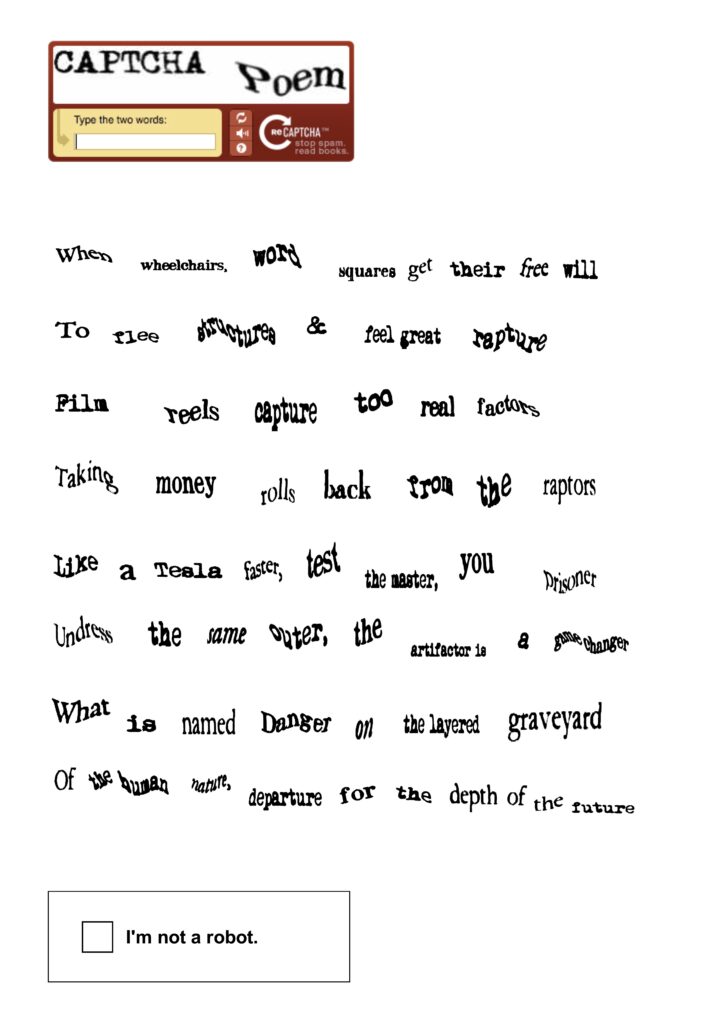 CAPTCHA Poem
Type the two words:
ReCAPTCHA™
stop spam.
read books.
When wheelchairs, word squares get their free will
To flee structures & feel great rapture
Film reels capture too real factors
Taking money rolls back from the raptors
Like a Tesla faster, test the master, you prisoner
Undress the same outer, the artifactor is a game changer
What is named Danger on the layered graveyard
Of the human nature, departure for the depth of the future
I'm not a robot.